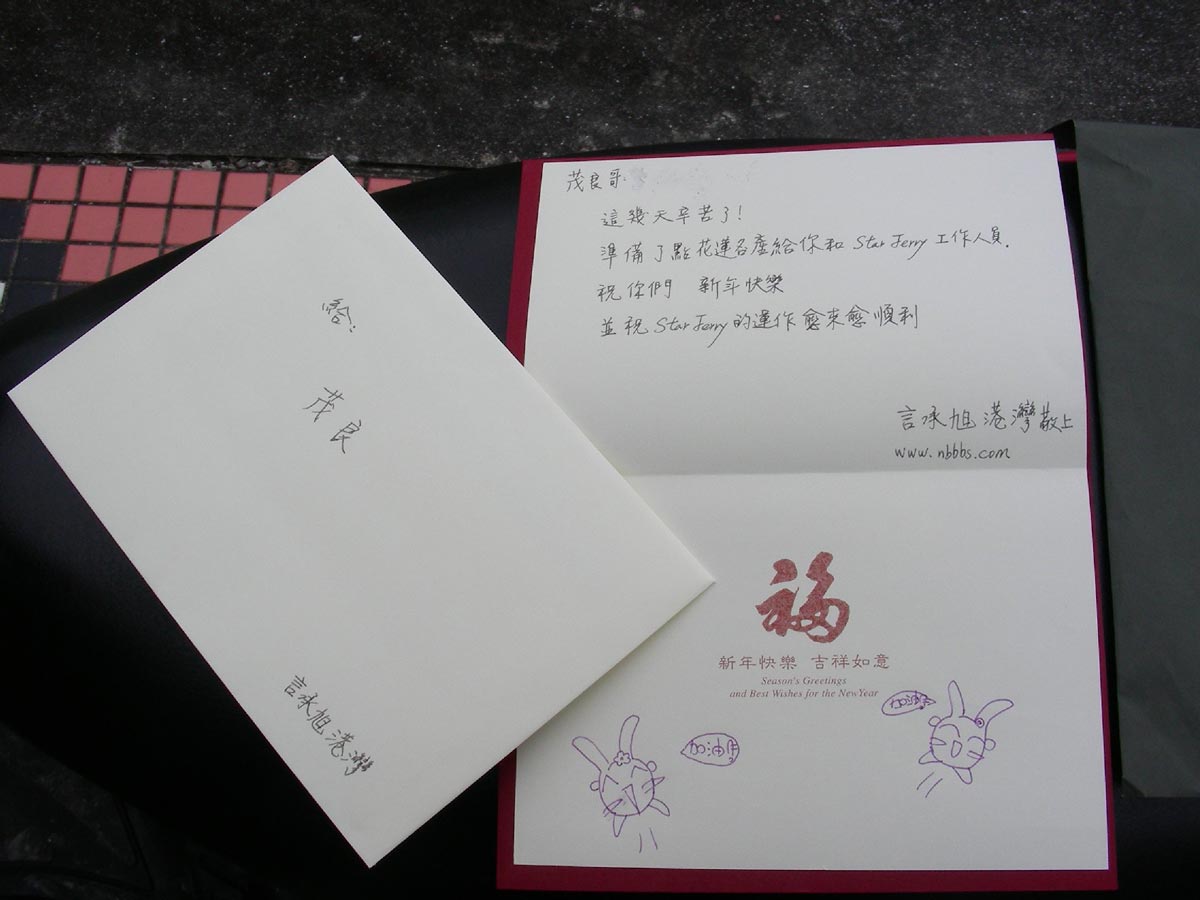 嗨:
茂良
言承旭港灣
茂良哥:
這幾天辛苦了!
準備了點花蓮名產給你和 Star Ferry 工作人員.
祝你們 新年快樂
並祝 Star Ferry 的運作愈來愈順利
言承旭港灣敬上
www.nbbbs.com
福
新年快樂 吉祥如意
Season's Greetings
and Best Wishes for the New Year
加油
加油